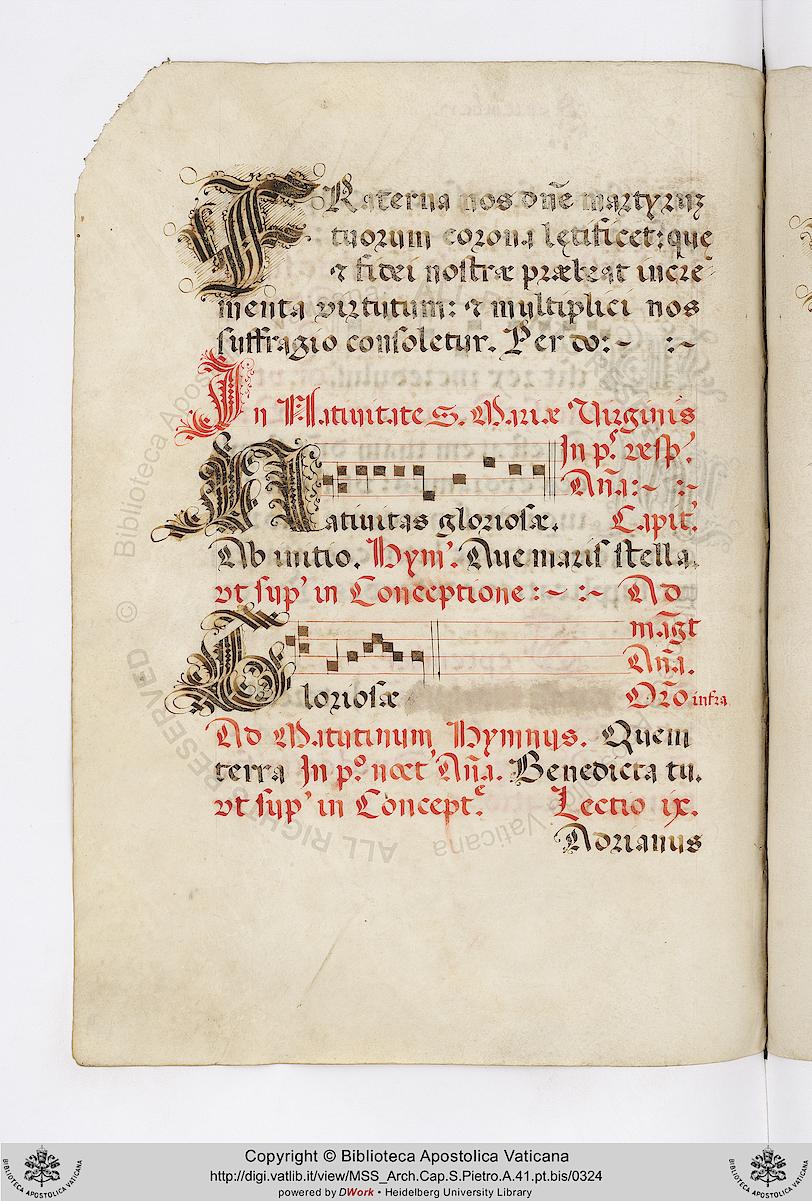 FRaterna nos dñe martyrum
tuorum corona lętificet: que
& fidei nostræ præbeat incre
menta virtutum: & multiplici nos
suffragio consoletur. Per do:~ :~
In Natiuitate S. Mariæ Virginis
In p.º vesp.'
Aña:~ :~
Natiuitas gloriosæ. Capit.'
Ab initio. Hym.' Aue maris stella.
vt sup' in Conceptione :~ :~ Ad
mag̃t
Aña.
Gloriosæ Orõ infra
Ad Matutinum Hymnus. Quem
terra In p.º noct' Aña. Benedicta tu.
vt sup' in Concept.ᵉ Lectio ix.
Adrianus
ALL RIGHTS RESERVED © Biblioteca Apostolica Vaticana
Copyright © Biblioteca Apostolica Vaticana
http://digi.vatlib.it/view/MSS_Arch.Cap.S.Pietro.A.41.pt.bis/0324
powered by DWork • Heidelberg University Library
BIBLIOTECA APOSTOLICA VATICANA
BIBLIOTECA APOSTOLICA VATICANA